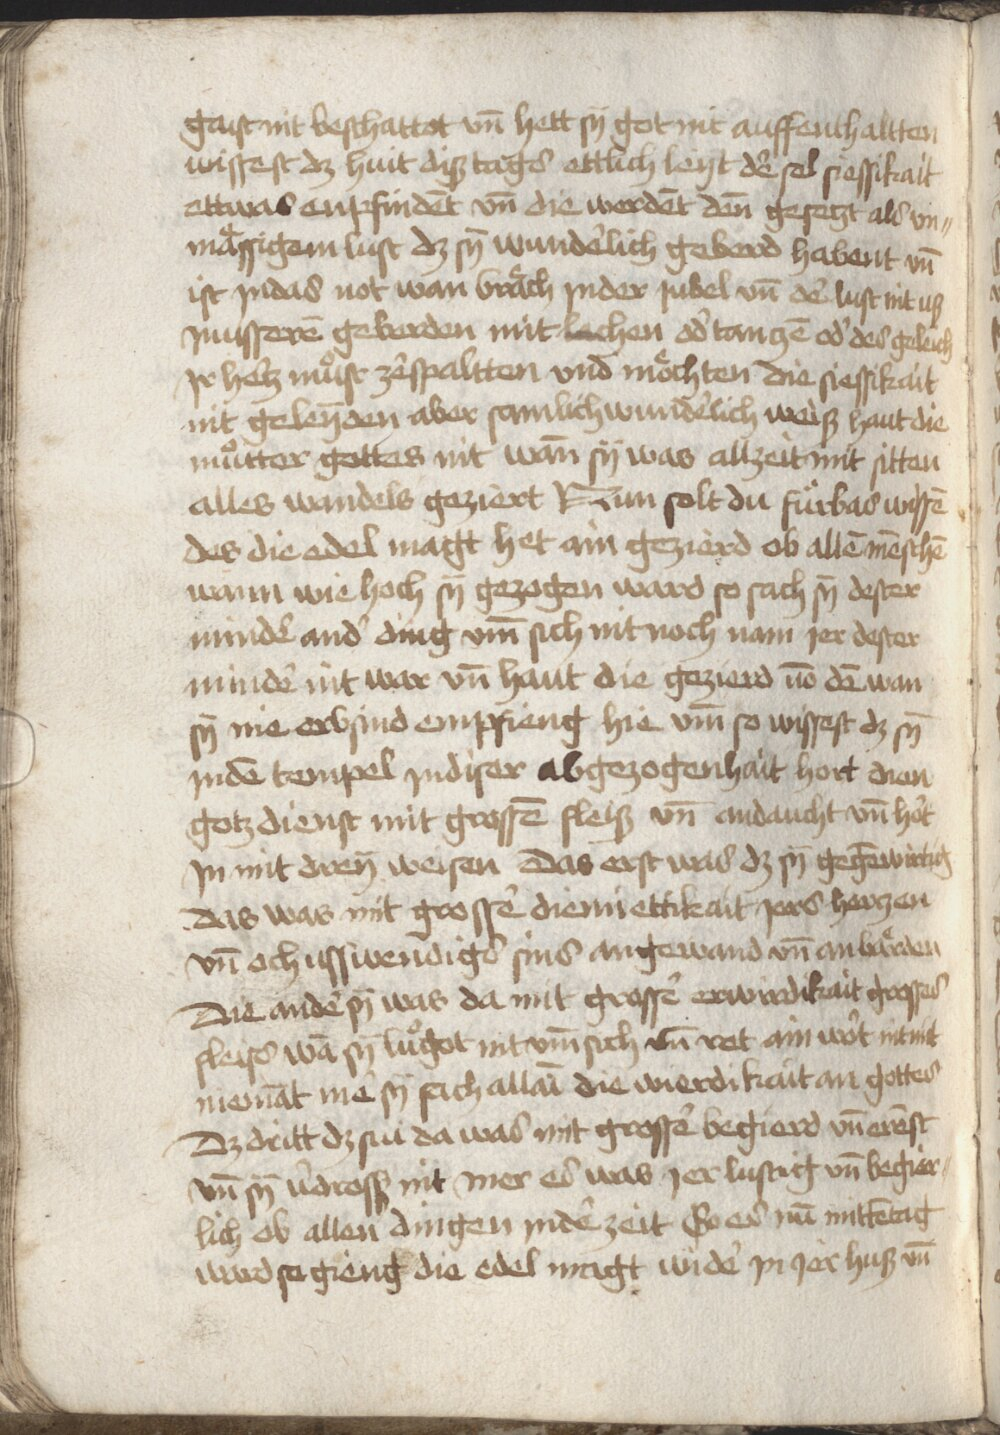 gaist nit beschattot vn̄ hett sÿ got nit auffenthaltten
wissest dz huit diß tags ettlich leẏt de᷑ sel siessikait
ettwas enpfindēt vn̄ die werdēt den̄ gesetzt als vn//
mässigem lust dz sÿ wunde᷑lich geberd habent vn̄
ist jndas not wan bräch jnder jubel vn̄ de᷑ lust nit uß
jnusserē geberden mit lachen od᷑ tantzē od᷑ des geleich
jr hertz mu̇ͦst ze᷑spaltten vnd möchten die siessikait
nit geleẏden aber samlich wunde᷑lich weiß haut die
mu̇ͦtter gottes nit wan̄ sÿ was allzeit mit sitten
alles wandels geziert Nun solt du fürbas wissē
des die edel magt het ain gezierd ob allē mēschē
wann wie hoch sÿ gezogen ward so sach sÿ dester
minde᷑ and᷑ ding vm̄ sich nit noch nam jer dester
minde᷑ nit war vn̄ haut die gezierd vō dē wan
sÿ nie erbsind empfieng hie vm̄ so wissest dz sÿ
jndē tempel jndiser abgezogenhait hort dien
gotz dienst mit grossē fleiß vn̄ andaucht vn̄ hört
jn mit dreÿ weisen Das erst was dz sÿ gegēwirtig
das was mit grosse᷑ diemiettikait jers hertzen
vn̄ och usswendigs sins angewand vn̄ an bärden
Die ande᷑ sÿ was da mit grosse᷑ erwirdikait grosses
fleiss wā sÿ lu̇ͦgot nit vm̄ sich vn̄ ret ain wort nit mit
niemāt me᷑ sÿ sach allaī die wierdikait an gottes
Dz dritt dz sui da was mit grosse᷑ begierd vn̄ ernst
vn̄ sÿ v᷑dross nit mer es was jer lustig vn̄ begier//
lich ob allen dingen jnde᷑ zeit So es nū mittētag
ward so gieng die edel magt wide᷑ jn jer huß vn̄